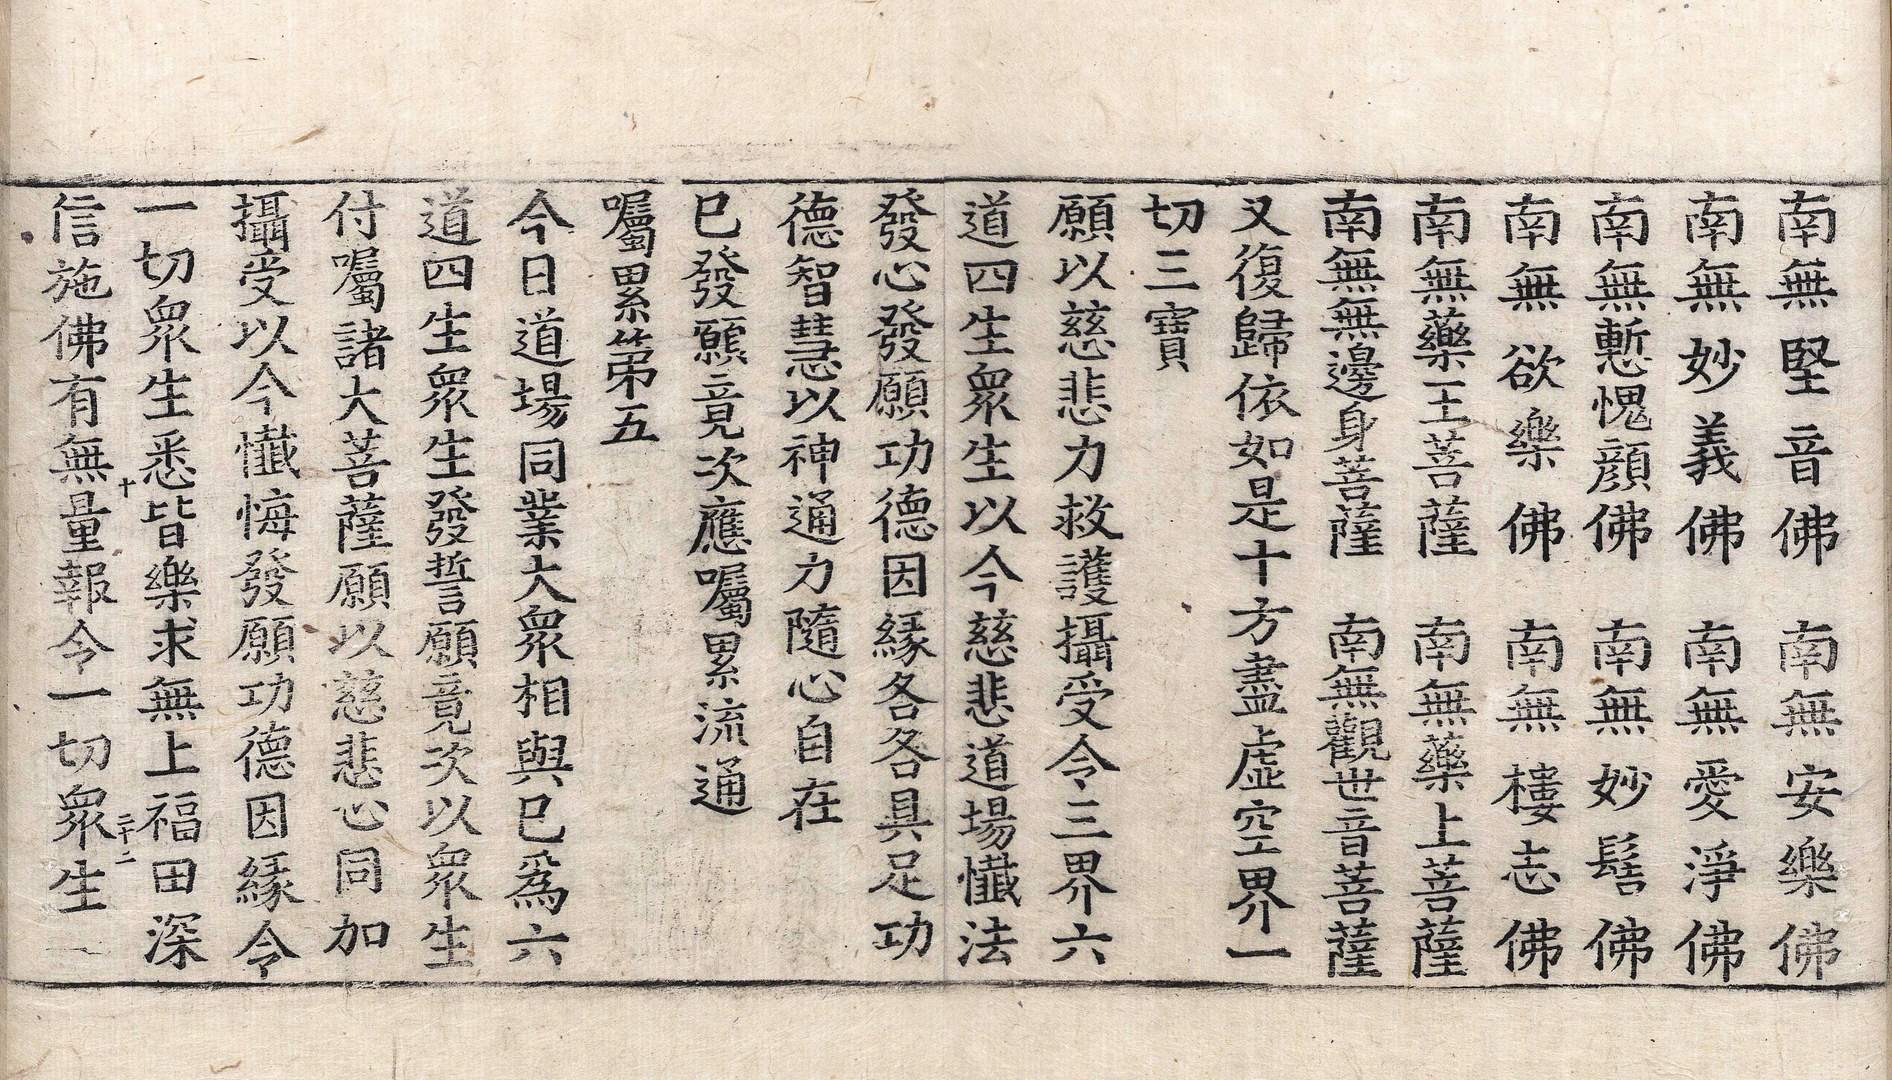 南無堅音佛　南無安樂佛
南無妙義佛　南無愛淨佛
南無慙愧顔佛　南無妙髻佛
南無欲樂佛　南無樓志佛
南無藥王菩薩　南無藥上菩薩
南無無邊身菩薩　南無觀世音菩薩
又復歸依如是十方盡虛空界一
切三寶
願以慈悲力救護攝受令三界六
道四生衆生以今慈悲道場懺法
發心發願功德因緣各各具足功
德智慧以神通力隨心自在
已發願竟次應囑累流通
囑累第五
今日道場同業大衆相與已爲六
道四生衆生發誓願竟次以衆生
付囑諸大菩薩願以慈悲心同加
攝受以今懺悔發願功德因緣令
一切衆生悉皆樂求無上福田深
十　二十二
信施佛有無量報令一切衆生一